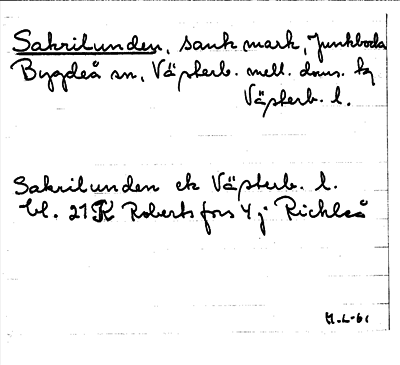 Sakrilunden, sank mark, Junkboda
Bygdeå sn, Västerb. mell. doms. hg
Västerb. l.
Sakrilunden ek Västerb. l.
bl. 21K Robertsfors 4 j Rickleå
M.L-61